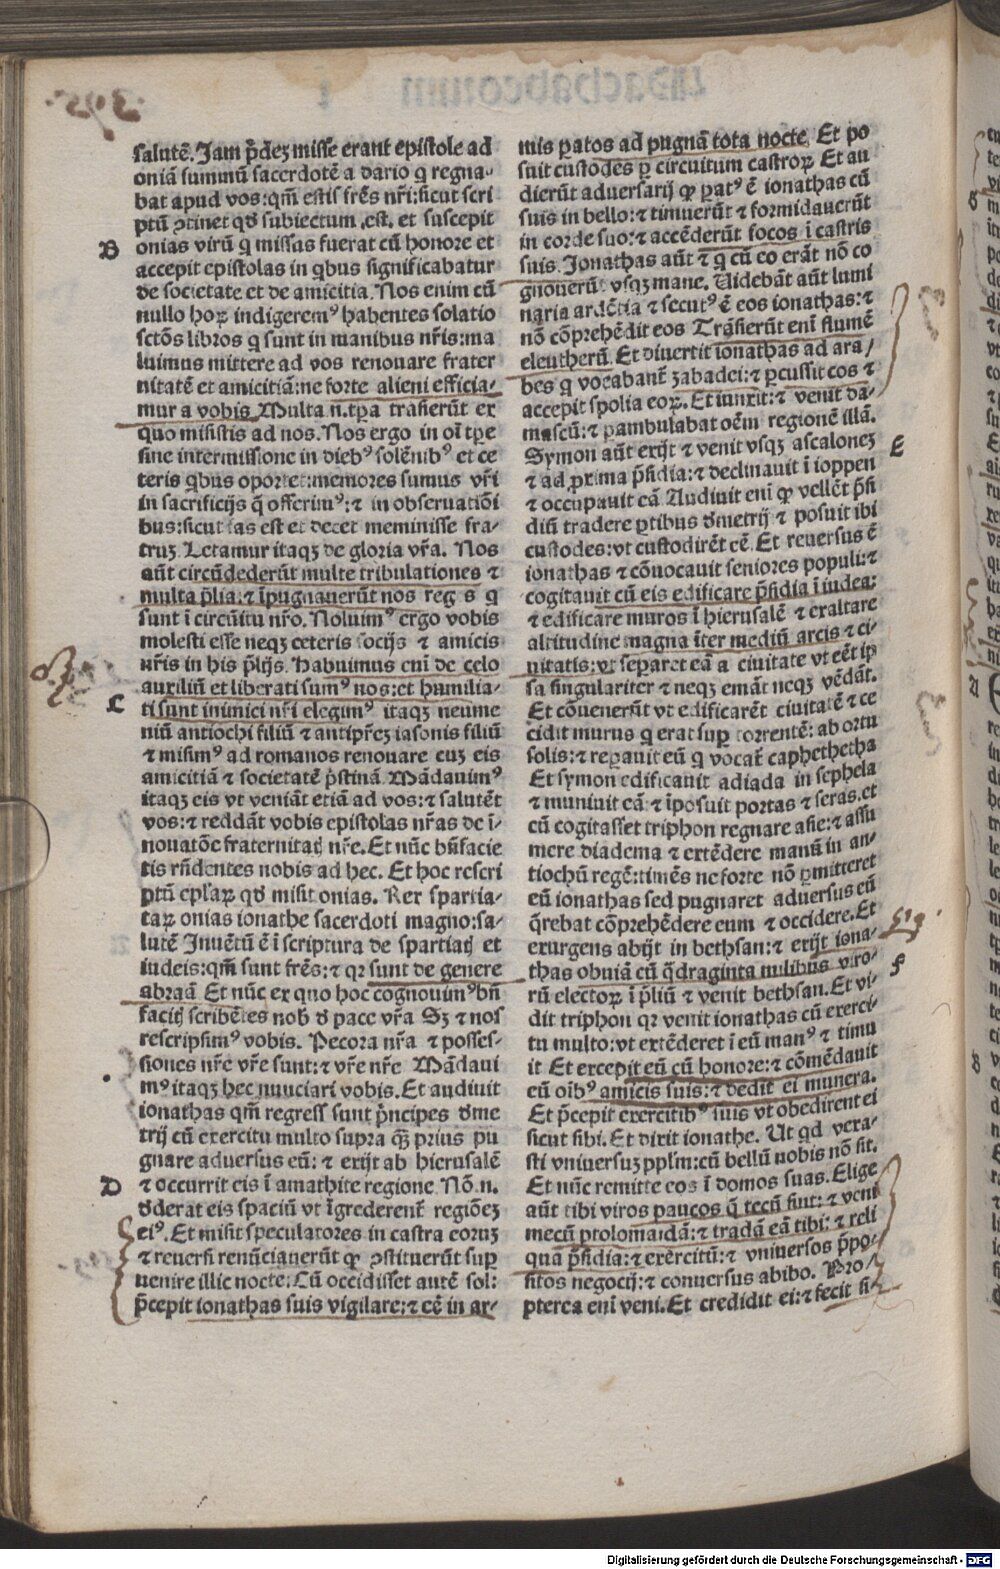 salutē. Jam p̄deȝ misse erant epistole ad
oniā summū sacerdotē a dario q regna-
bat apud vos: qm̄ estis frēs nr̄i: sicut scri
ptū ꝯtinet qđ subiectum .est. et suscepit
B onias virū q missus fuerat cū honore et
accepit epistolas in qbus significabatur
de societate et de amicitia. Nos enim cū
nullo hoꝝ indigerem⁹ habentes solatio
sctōs libros q sunt in manibus nr̄is: ma
luimus mittere ad vos renouare frater
nitatē et amicitiā: ne forte alieni efficia-
mur a vobis. Multa .n. tp̄a trāsierūt ex
quo misistis ad nos. Nos ergo in oī tp̄e
sine intermissione in dieb⁹ solēnib⁹ et ce
teris qbus oportet: memores sumus vr̄i
in sacrificijs q̄ offerim⁹: ⁊ in obseruatiōi
bus: sicut fas est et decet meminisse fra-
truȝ. Letamur itaqȝ de gloria vr̄a. Nos
aūt circūdederūt multe tribulationes ⁊
multa p̄lia: ⁊ īpugnauerūt nos reges q
sunt ī circuitu nr̄o. Noluim⁹ ergo vobis
molesti esse neqȝ ceteris socijs ⁊ amicis
nr̄is in his p̄lijs. Habuimus eni de celo
auxiliū et liberati sum⁹ nos: et humilia-
C ti sunt inimici nr̄i elegim⁹ itaqȝ neume
niū antiochi filiū ⁊ antipr̄eȝ iasonis filiū
⁊ misim⁹ ad romanos renouare cuȝ eis
amicitiā ⁊ societatē p̄stinā. Mādauim⁹
itaqȝ eis vt veniāt etiā ad vos: ⁊ salutēt
vos: ⁊ reddāt vobis epistolas nr̄as de ī-
nouatōe fraternitatȷ nr̄e. Et nūc bn̄facie
tis rn̄dentes nobis ad hec. Et hoc rescri
ptū epl̄aꝝ qđ misit onias. Rex spartia-
taꝝ onias ionathe sacerdoti magno: sa-
lutē Inuētū ē ī scriptura de spartiatȷ et
iudeis: qm̄ sunt frēs: ⁊ qꝛ sunt de genere
abraā Et nūc ex quo hoc cognouim⁹ bn̄
facitȷ scribētes nob̄ đ pace vr̄a Sȝ ⁊ nos
rescripsim⁹ vobis. Pecora nr̄a ⁊ posses-
siones nr̄e vr̄e sunt: ⁊ vr̄e nr̄e Mādaui
m⁹ itaqȝ hec nunciari vobis. Et audiuit
ionathas qm̄ regressi sunt p̄ncipes đme
trij cū exercitu multo supra q̄ȝ prius pu
gnare aduersus eū: ⁊ exijt ab hierusalē
D ⁊ occurrit eis ī amathite regione. Nō .n.
đderat eis spaciū vt īgrederent̄ regiōeȝ
ei⁹. Et misit speculatores in castra eoruȝ
⁊ reuersi renūciauerūt qꝙ ꝯstituerūt sup̄
uenire illic nocte. Cū occidisset autē sol:
p̄cepit ionathas suis vigilare: ⁊ eē in ar-
mis ꝑatos ad pugnā tota nocte. Et po
suit custodes ꝑ circuitum castroꝝ Et au
dierūt aduersarij ꝙ ꝑat⁹ ē ionathas cū
suis in bello: ⁊ timuerūt ⁊ formidauerūt
in corde suo: ⁊ accēderūt focos ī castris
suis. Jonathas aūt ⁊ q cū eo erāt nō co
gnouerūt vsqȝ mane. Uidebāt aūt lumi
naria ardētia ⁊ secut⁹ ē eos ionathas: ⁊
nō cōprehēdit eos Trāsierūt eni flumē
eleutherū. Et diuertit ionathas ad ara/
bes q vocabant̄ zabadei: ⁊ ꝑcussit eos ⁊
accepit spolia eoꝝ. Et iunxit: ⁊ venit da-
mascū: ⁊ ꝑambulabat oēm regionē illā.
E Symon aūt exijt ⁊ venit vsqȝ ascaloneȝ
⁊ ad proxima p̄sidia: ⁊ declinauit ī ioppen
⁊ occupauit eā Audiuit eni ꝙ vellēt p̄si
diū tradere ꝑtibus đmetrij ⁊ posuit ibi
custodes: vt custodirēt eē. Et reuersus ē
ionathas ⁊ cōuocauit seniores populi: ⁊
cogitauit cū eis edificare p̄sidia ī iudea:
⁊ edificare muros ī hierusalē ⁊ exaltare
altitudinē magna īter mediū arcis ⁊ ci-
uitatis: vt separet eā a ciuitate vt eēt ip
sa singulariter ⁊ neqȝ emāt neqȝ vēdāt.
Et cōuenerūt vt edificarēt ciuitatē ⁊ ce
cidit murus q erat sup̄ torrentē: ab ortu
solis: ⁊ reꝑauit eū q vocat̄ caphethetha
Et symon edificauit adiada in sephela
⁊ muniuit eā ⁊ īposuit portas ⁊ seras. et
cū cogitasset triphon regnare asie: ⁊ assu
mere diadema ⁊ extēdere manū in an-
tiochū regē: timēs ne forte nō ꝑmitteret
eū ionathas sed pugnaret aduersus eū
q̄rebat cōprehēdere eum ⁊ occidere. Et
exurgens abijt in bethsan: ⁊ exijt iona-
F thas obuiā cū q̄draginta milibus viro-
rū electoꝝ ī p̄liū ⁊ venit bethsan. Et vi-
dit triphon qꝛ venit ionathas cū exerci-
tu multo: vt extēderet ī eū man⁹ ⁊ timu
it Et excepit eū cū honore: ⁊ cōmēdauit
eū oib⁹ amicis suis: ⁊ dedit ei munera.
Et p̄cepit exercitib⁹ suis vt obedirent ei
sicut sibi. Et dixit ionathe. Ut qd vexa-
sti vniuersuȝ pplm̄: cū bellū nobis nō sit.
Et nūc remitte eos ī domos suas. Elige
aūt tibi viros paucos q̄ tecū sint: ⁊ veni
mecū ptolomaidā: ⁊ tradā eā tibi: ⁊ reli
quā p̄sidia: ⁊ exercitū: ⁊ vniuersos p̄po-
sitos negocij: ⁊ conuersus abibo. Pro-
pterea eni veni. Et credidit ei: ⁊ fecit si-
Digitalisierung gefördert durch die Deutsche Forschungsgemeinschaft - DFG